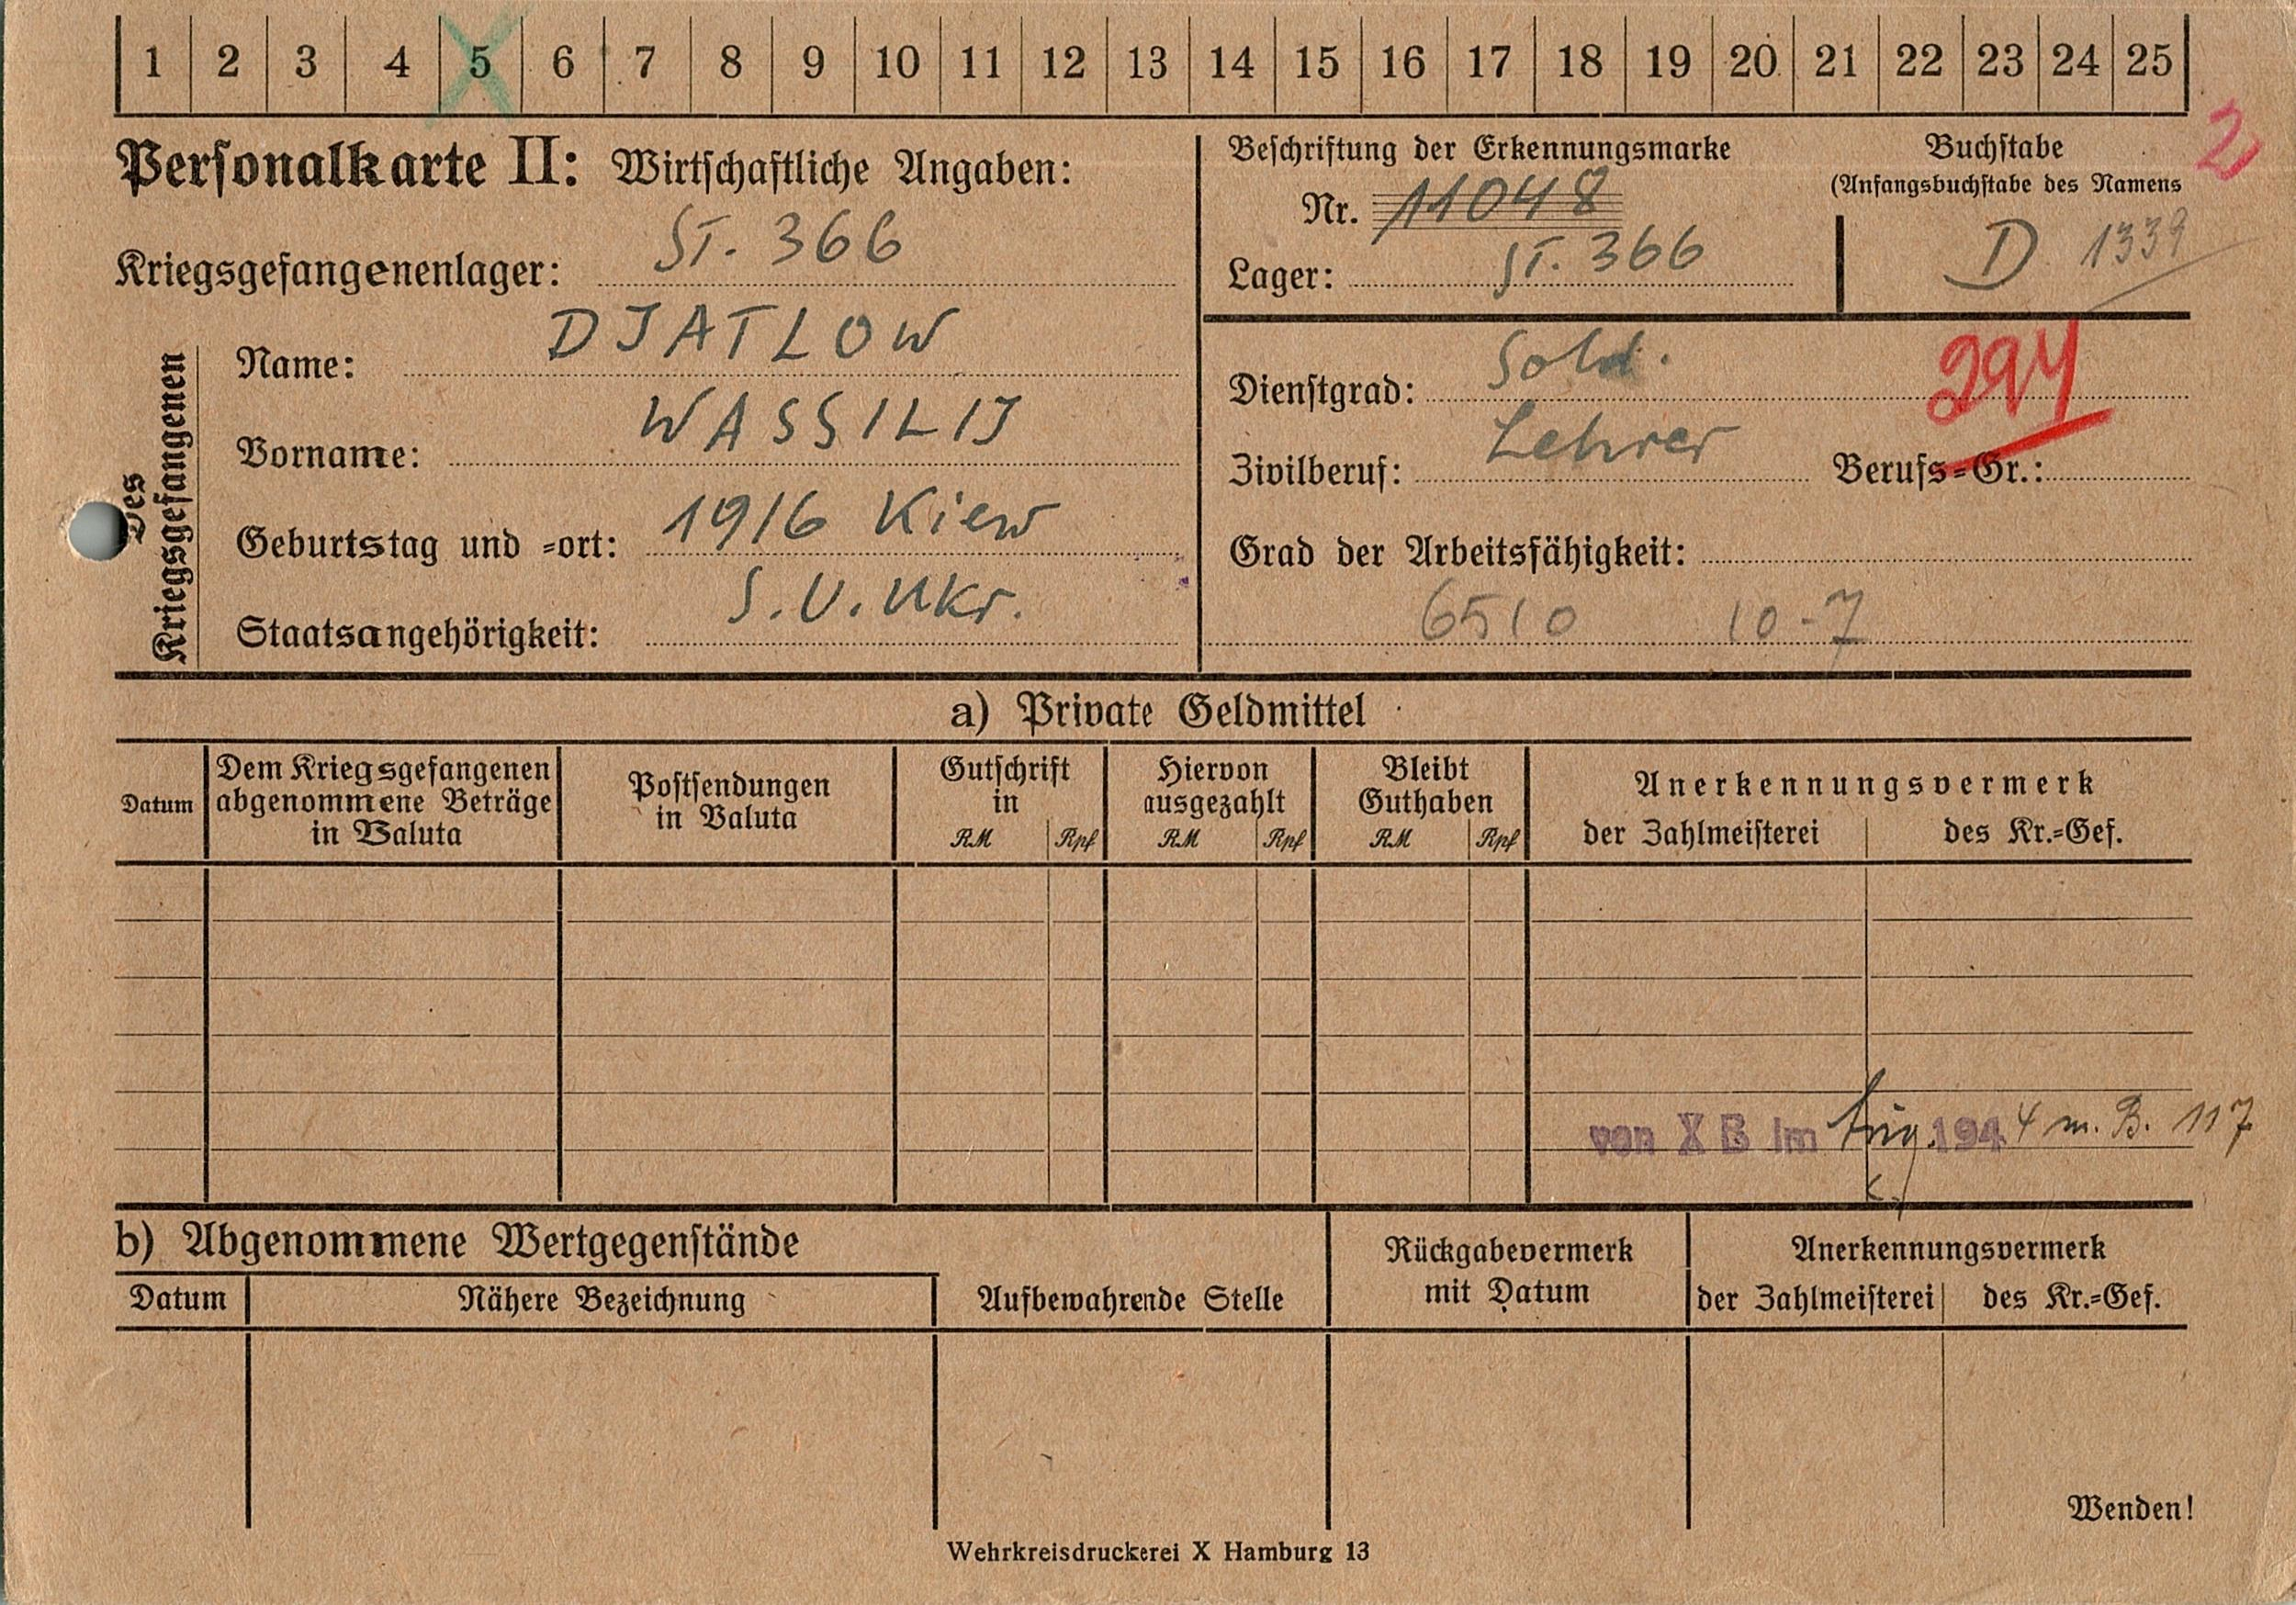 1 2 3 4 5 6 7 8 9 10 11 12 13 14 15 16 17 18 19 20 21 22 23 24 25
2
Personalkarte II: Wirtschaftliche Angaben:
Kriegsgefangenenlager: ST. 366
Des Kriegsgefangenen
Name: DJATLOW
Vorname: WASSILIJ
Geburtstag und =ort: 1916 Kiew
Staatsangehörigkeit: S.U. Ukr.
Beschriftung der Erkennungsmarke
Nr. 11048
Lager: ST. 366
Buchstabe
(Anfangsbuchstabe des Namens
D 1339
Dienstgrad: Sold.
294
Zivilberuf: Lehrer Berufs=Gr.:
Grad der Arbeitsfähigkeit:
6510 10-7
a) Private Geldmittel
Datum
Dem Kriegsgefangenen
abgenommene Beträge
in Valuta
Postsendungen
in Valuta
Gutschrift
in
RM Rpf
Hiervon
ausgezahlt
RM Rpf
Bleibt
Guthaben
RM Rpf
Anerkennungsvermerk
der Zahlmeisterei des Kr.=Gef.
von X B im Aug. 1944 m. B. 117
b) Abgenommene Wertgegenstände
Datum Nähere Bezeichnung
Aufbewahrende Stelle
Rückgabevermerk
mit Datum
Anerkennungsvermerk
der Zahlmeisterei des Kr.=Gef.
Wenden!
Wehrkreisdruckerei X Hamburg 13